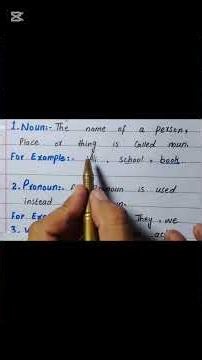 1. Noun:- The name of a person,
Place or thing is called noun.
For Example:- , school, book
2. Pronoun:- Pronoun is used
instead
For They, we
3.